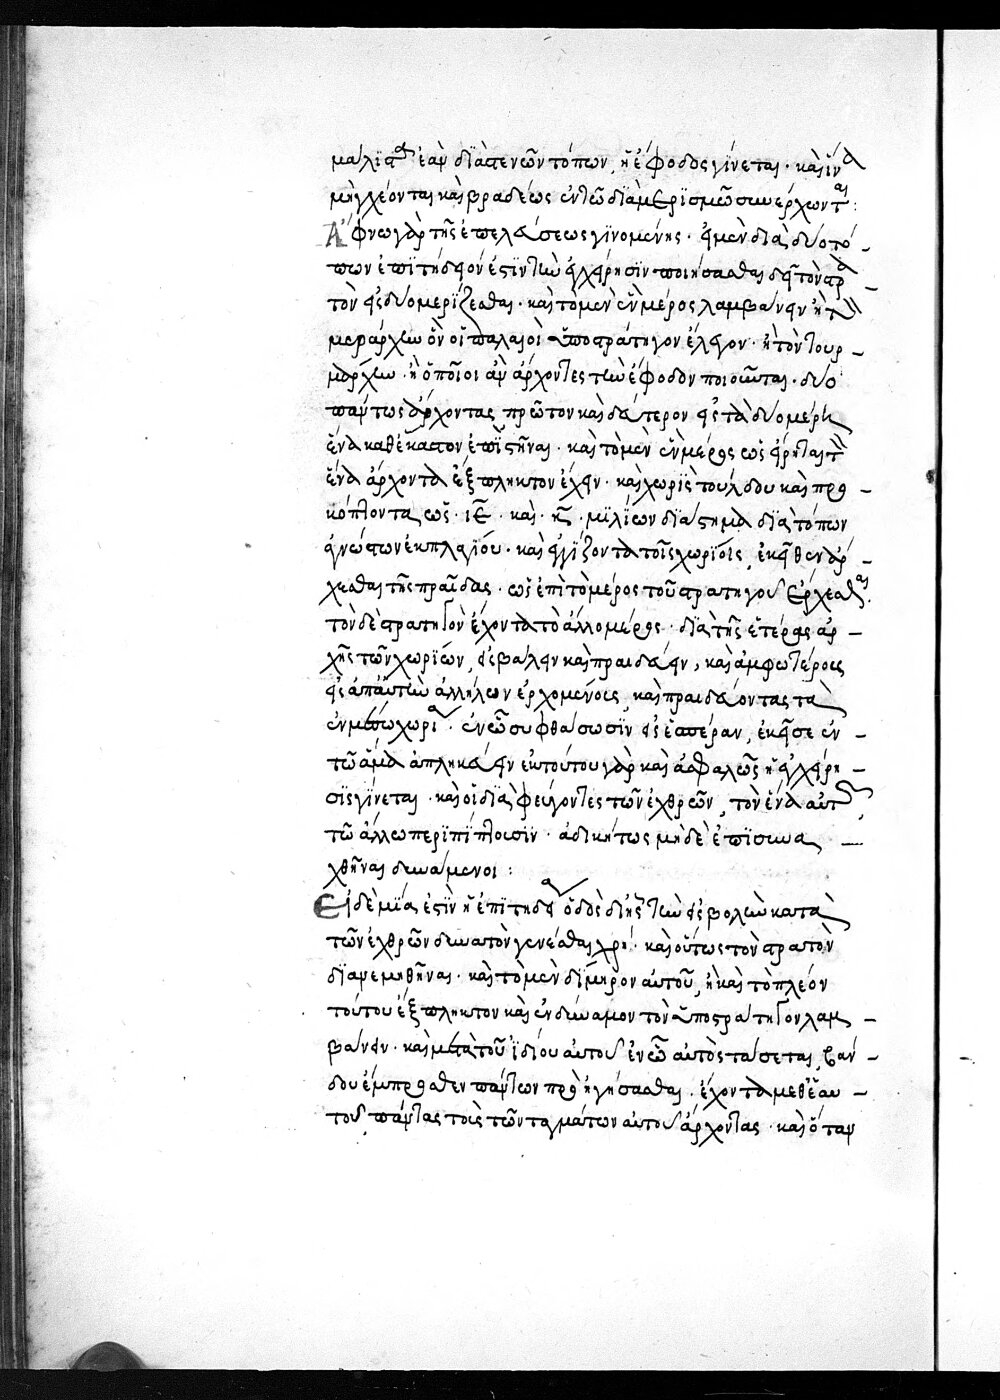 μάλιστα ἐὰν διὰ στενῶν τόπων, ἡ ἔφοδος γίνεται · καὶ ἵνα
μὴ χέονται καὶ βραδέως ἐν τῷ διαμερισμῷ συνέρχωνται :
Ἄφνω γὰρ τῆς ἐπελάσεως γινομένης · εἰ μὲν διὰ δύο τό-
πων ἐπιτήδειόν ἐστιν τὴν ἐγχείρησιν ποιήσασθαι δεῖ τὸν στρα-
τὸν εἰς δύο μερίζεσθαι · καὶ τὸ μὲν ἓν μέρος λαμβάνειν ἢ τὸν
μεράρχην ὃν οἱ παλαιοὶ ὑποστράτηγον ἔλεγον · ἢ τὸν τουρ-
μάρχην · ἢ ὁποῖοι ἂν ἄρχοντες τὴν ἔφοδον ποιοῦνται · δύο
πάντως ἄρχοντας πρῶτον καὶ δεύτερον εἰς τὰ δύο μέρη
ἕνα καθέκαστον ἐπιστῆναι · καὶ τὸ μὲν ἓν μέρος ὡς εἴρηται τὸν
ἕνα ἄρχοντα ἐξπληκτον ἔχειν · καὶ χωρὶς τούλδου καὶ προ-
κόπτοντα ὡς · ιε · καὶ · κ · μιλίων διάστημα διὰ τόπων
ἀγνώστων ἐκ πλαγίου · καὶ ἐγγίζοντα τοῖς χωρίοις, ἐκεῖθεν ἄρ-
χεσθαι τῆς πραίδας · ὡς ἐπὶ τὸ μέρος τοῦ στρατηγοῦ ἔρχεσθαι
τὸν δὲ στρατηγὸν ἔχοντα τὸ ἄλλο μέρος · διὰ τῆς ἑτέρας ἀρ-
χῆς τῶν χωρίων, εἰσβάλειν καὶ πραιδεύειν, καὶ ἀμφωτέροις
εἰς ἀπάντην ἀλλήλων ἐρχομένοις, καὶ πραιδεύοντας τὰ
ἐν μέσῳ χωρία · ἐν ᾧ συμφθάσωσιν εἰς ἑσπέραν, ἐκεῖσε ἐν
τῷ ἅμα ἀπλικεύειν ἐκ τούτου γὰρ καὶ ἀσφαλῶς ἡ ἐγχείρη-
σις γίνεται · καὶ οἱ διαφεύγοντες τῶν ἐχθρῶν, τὸν ἕνα αὐτῶν,
τῷ ἄλλῳ περιπίπτουσιν · ἀδικήτως μηδὲ ἐπισυνα-
χθῆναι δυνάμενοι :
Εἰ δὲ μία ἐστὶν ἡ ἐπιτηδεία ὁδὸς δι' ἧς τὴν εἰσβολὴν κατὰ
τῶν ἐχθρῶν δυνατὸν γενέσθαι χρὴ · καὶ οὕτως τὸν στρατὸν
διανεμηθῆναι · καὶ τὸ μὲν δίμηρον αὐτοῦ, ἢ καὶ τὸ πλέον
τούτου ἐξπληκτον καὶ ἐνδύναμον τὸν ὑποστράτηγον λαμ-
βάνειν · καὶ μετὰ τοῦ ἰδίου αὐτοῦ ἐν ᾧ αὐτὸς τάσσεται, βάν-
δου ἔμπροσθεν πάντων προηγήσασθαι · ἔχοντα μεθ' ἑαυ-
τοῦ πάντας τοὺς τῶν ταγμάτων αὐτοῦ ἄρχοντας · καὶ ὅταν